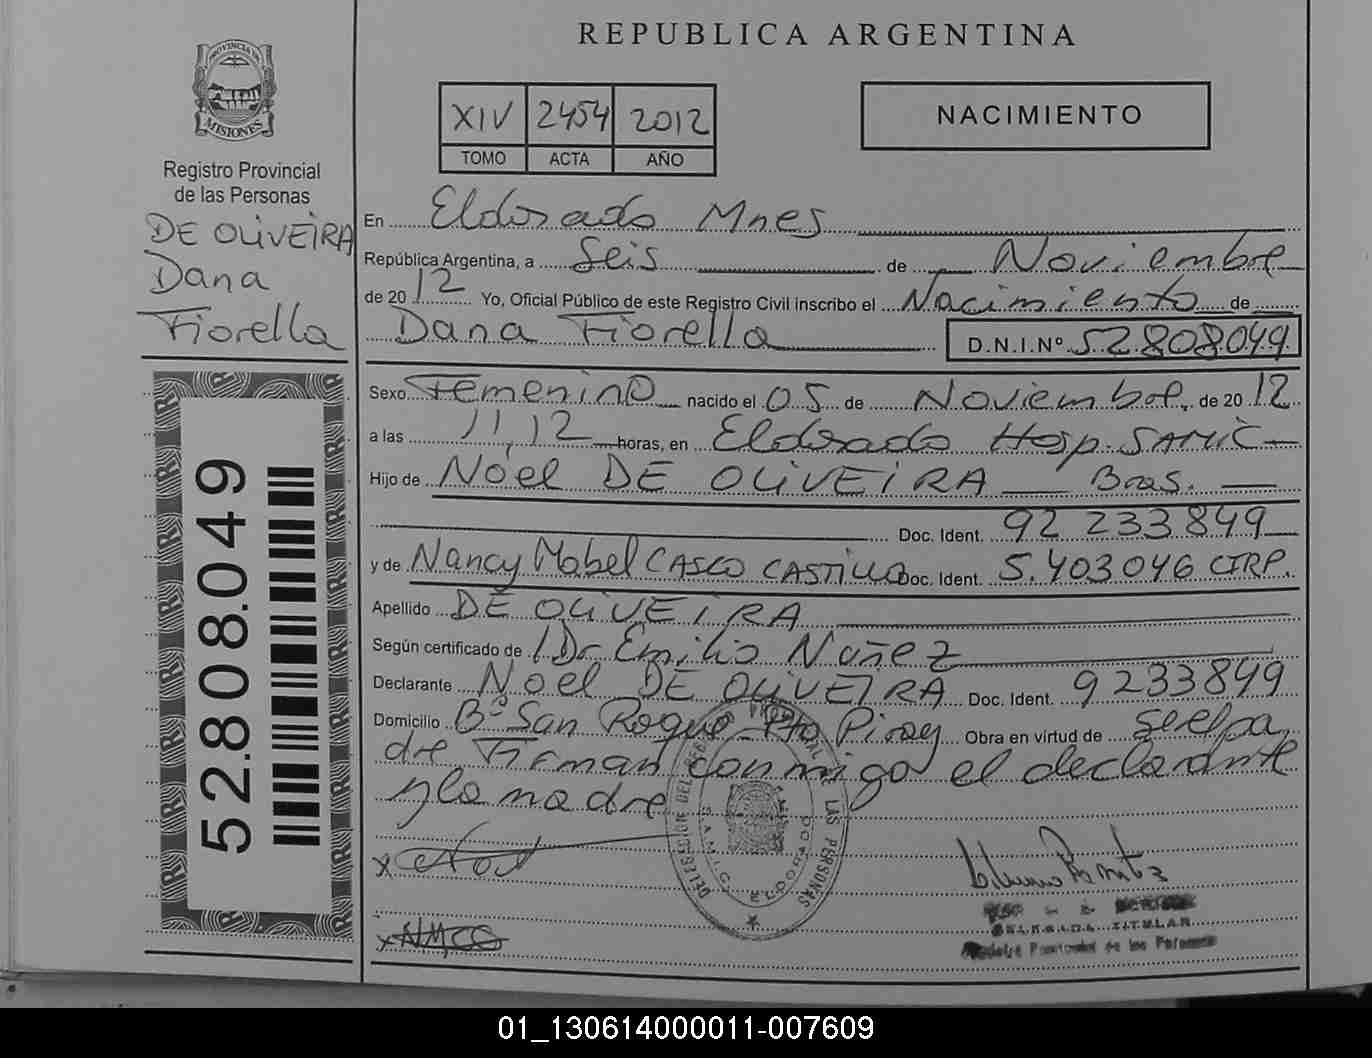 REPUBLICA ARGENTINA
PROVINCIA DE
MISIONES
Registro Provincial
de las Personas
DE OLIVEIRA
Dana
Fiorella
52.808.049
XIV 2454 2012
TOMO ACTA AÑO
NACIMIENTO
En Eldorado Mnes
República Argentina, a Seis de Noviembre
de 2012 Yo, Oficial Público de este Registro Civil inscribo el Nacimiento de
Dana Fiorella D.N.I.Nº 52808049
Sexo Femenino nacido el 05 de Noviembre de 2012
a las 11,12 horas, en Eldorado Hosp. SAMIC
Hijo de Noel DE OLIVEIRA Bras.
Doc. Ident. 92 233849
y de Nancy Mabel CASCO CASTILLO Doc. Ident. 5.403046 CIRP.
Apellido DE OLIVEIRA
Según certificado de Dr Emilio Nuñez
Declarante Noel DE OLIVEIRA Doc. Ident. 9233849
Domicilio Bº San Roque Pto Piray Obra en virtud de ser el pa
dre Firman conmigo el declarante
y la madre
DELEGACION DEL REG PROVINCIAL DE LAS PERSONAS
SAMIC ELDORADO
x Noel
x NMCC
TITULAR
Provincial de las Personas
01_130614000011-007609